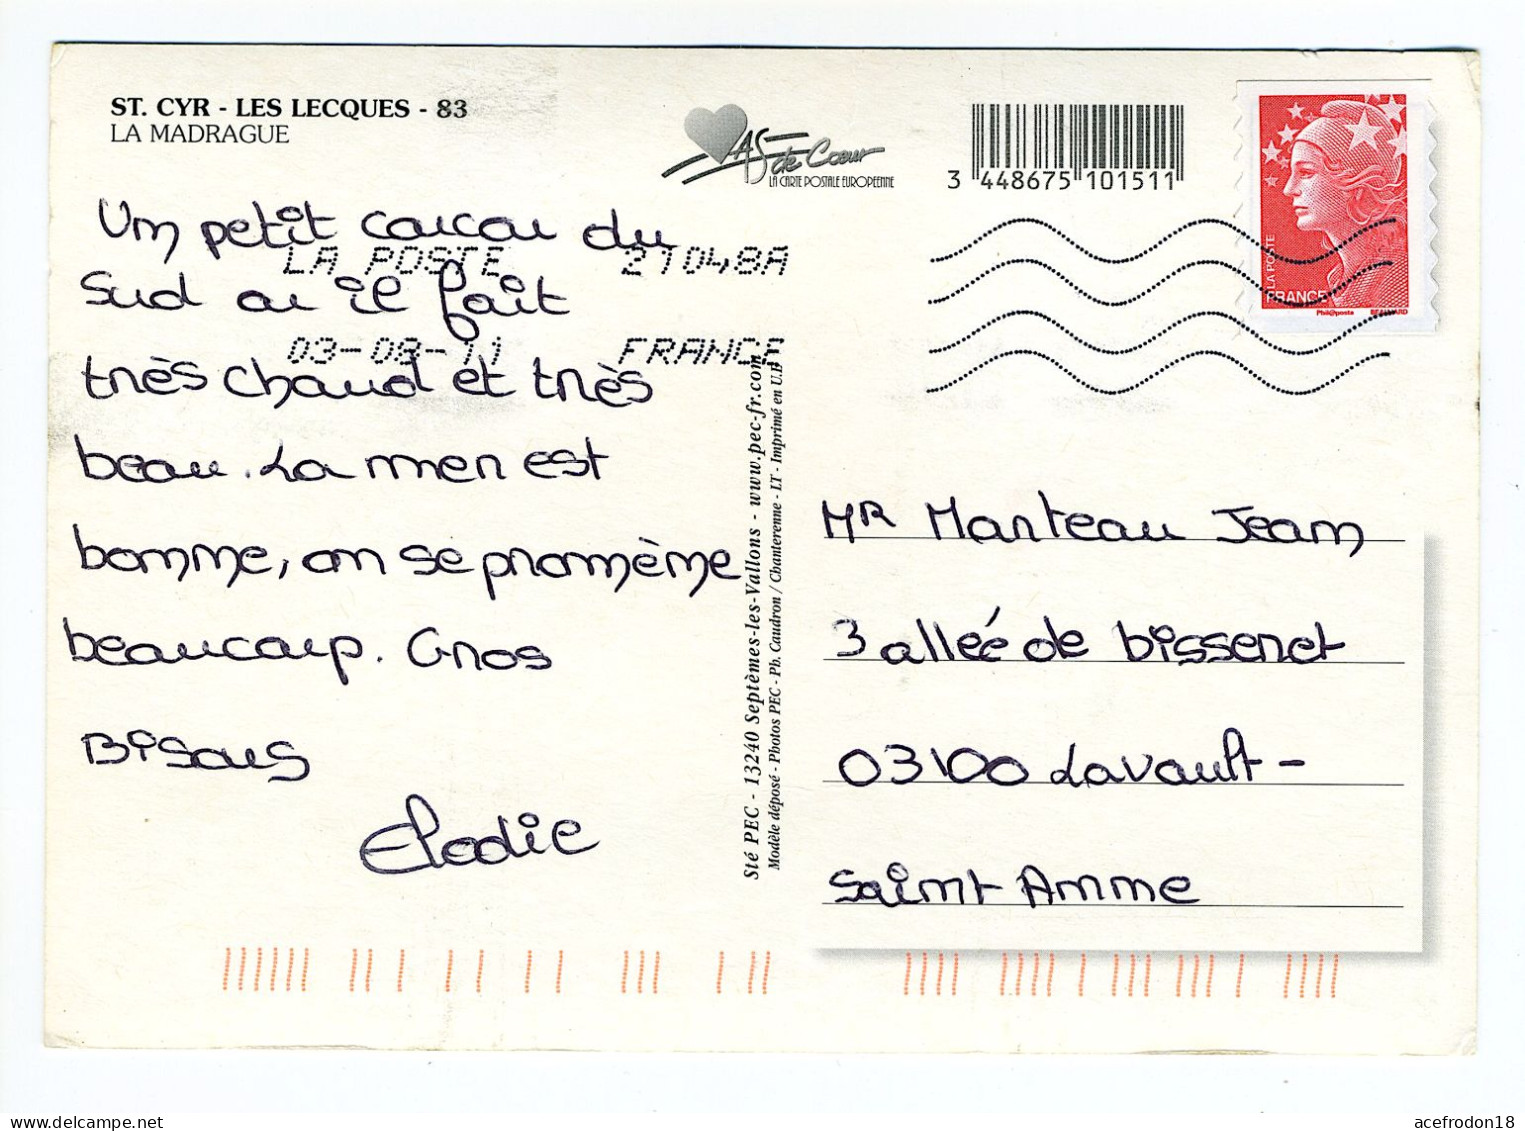 ST. CYR - LES LECQUES - 83
LA MADRAGUE
AS de Coeur
LA CARTE POSTALE EUROPEENNE
3 448675 101511
LA POSTE
FRANCE
Phil@posta BEAUJARD
LA POSTE 21048A
03-08-11 FRANCE
Un petit coucou du
Sud ou il fait
très chaud et très
beau. La mer est
bonne, on se promène
beaucoup. Gros
Bisous
Elodie
Sté PEC - 13240 Septèmes-les-Vallons - www.pec-fr.com
Modèle déposé - Photos PEC - Ph. Caudron / Chanterenne - LT - Imprimé en U.E
MR Manteau Jean
3 alleé de bisseret
03100 Lavault-
Saint Anne
acefrodon18